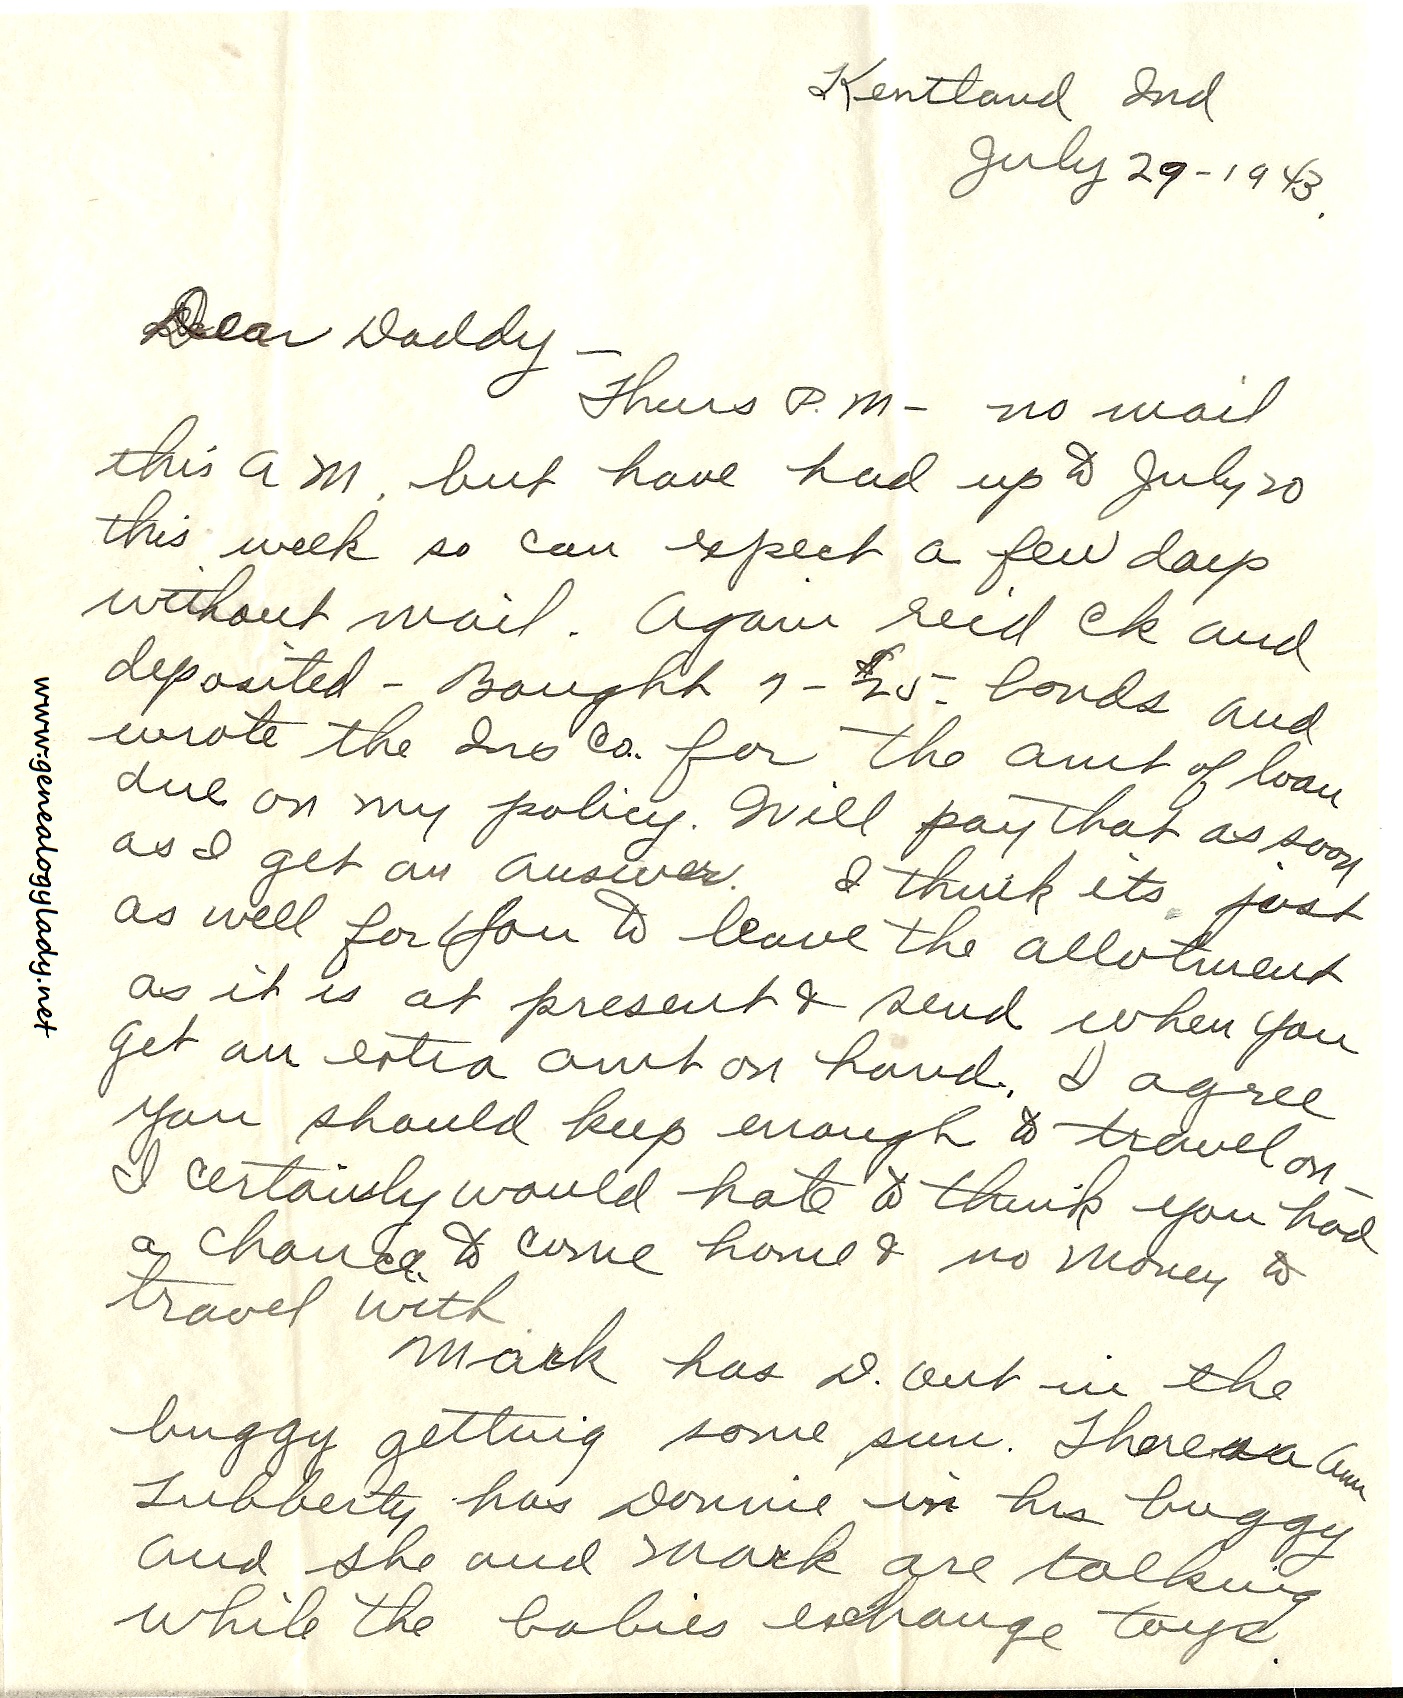 Kentland Ind
July 29-1943.
Dear Daddy -
Thurs P.M - no mail
this A M, but have had up to July 20
this week so can expect a few days
without mail. Again rec'd ck and
deposited - Bought 7 - $25- bonds and
wrote the Ins Co. for the amt of loan
due on my policy. Will pay that as soon
as I get an answer. I think its just
as well for you to leave the allotment
as it is at present & send when you
get an extra amt on hand. I agree
you should keep enough to travel on -
I certainly would hate to think you had
a chance to come home & no money to
travel with
Mark has D. out in the
buggy getting some sun. Theresa Ann
Lubberty has Donnie in his buggy
and she and Mark are talking
while the babies exchange toys.
www.genealogylady.net